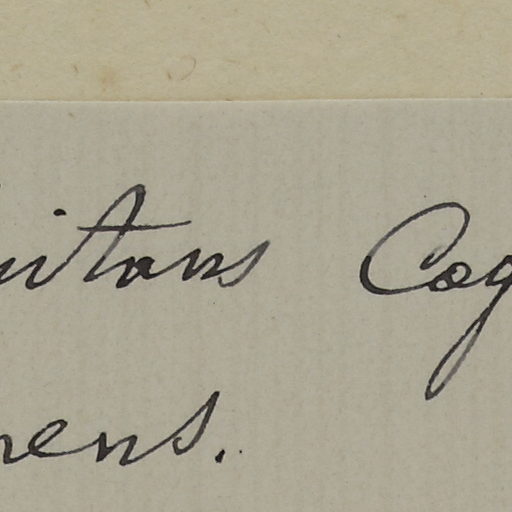 itans Cog
ens.